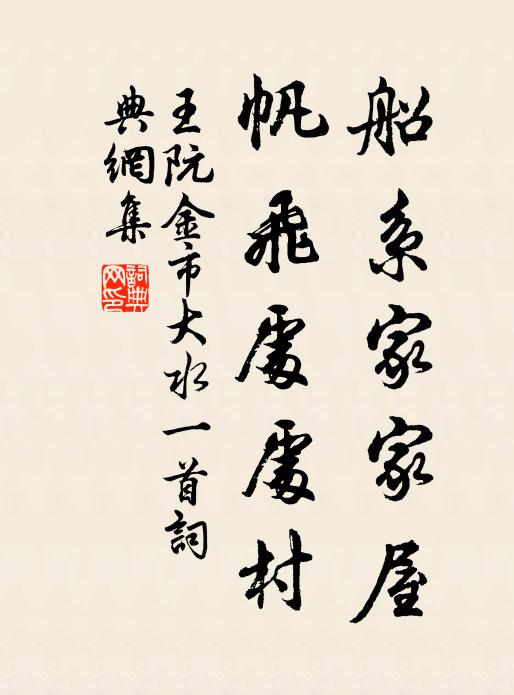 船系家家屋
帆飛處處村
王阮金市大水一首詞
典網集
詞典
网印